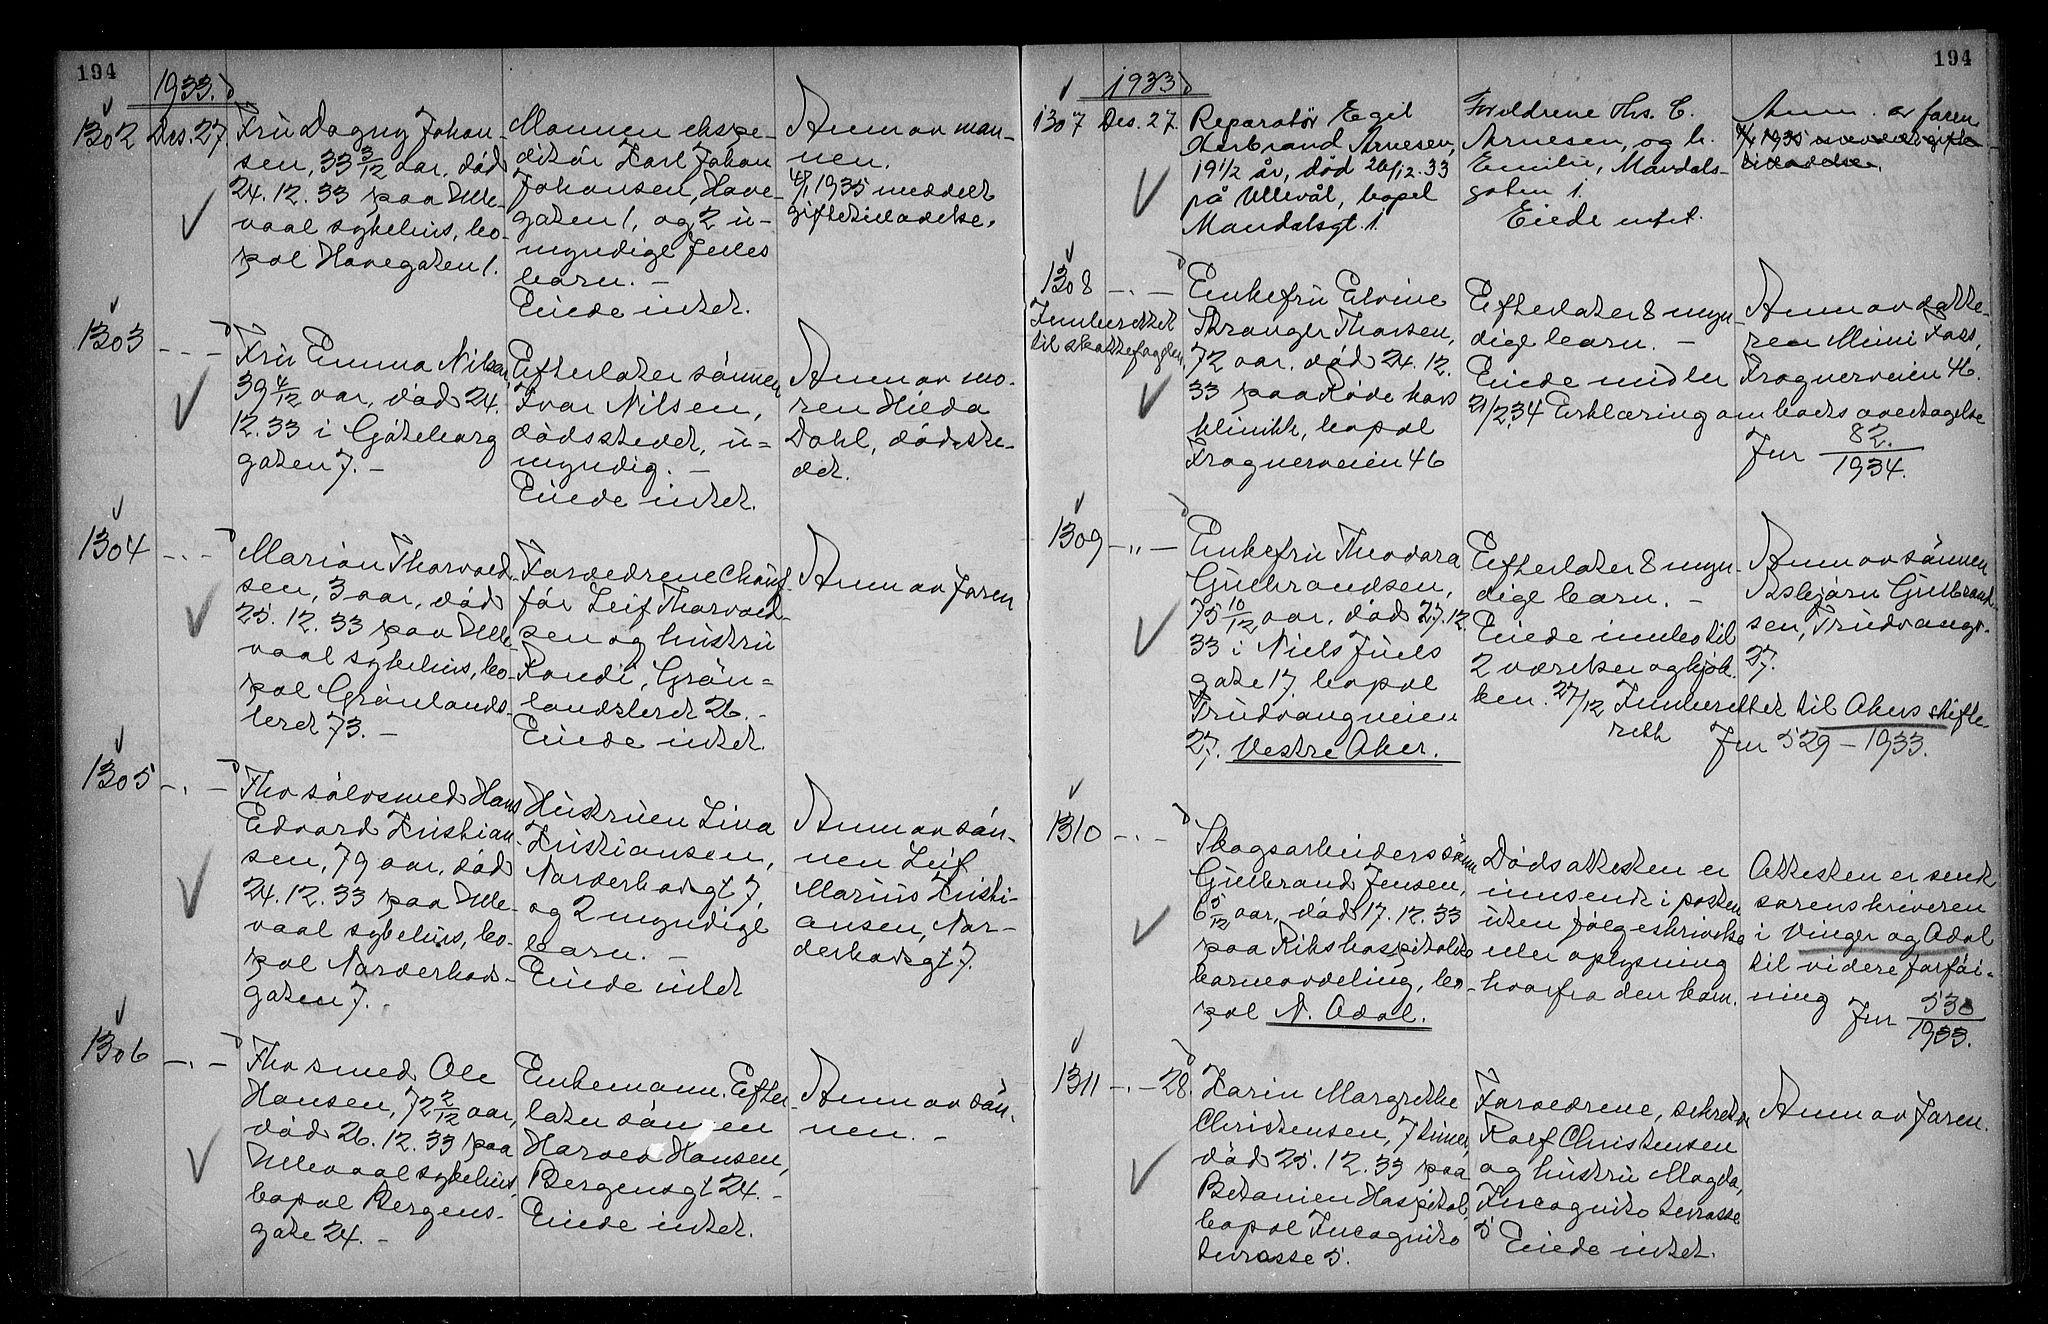 194
1933.
1302 Des. 27.
Fru Dagny Johan-
sen, 33 3/12 aar, död
24.12.33 paa Ulle-
vaal sykehus, bo-
pæl Havegaten 1.
Mannen ekspe-
ditör Karl Johan
Johansen, Have-
gaten 1, og 2 u-
myndige felles
barn. -
Eiede intet.
Anm av man-
nen.
4/1 1935 meddelt
giftetilladelse.
1303 - . -
Fru Emma Nilsen,
39 4/12 aar, död 24.
12.33 i Göteborg
gaten 7. -
Efterlater sönnen
Ivar Nilsen,
dödsstedet, u=
myndig. -
Eiede intet.
Anm av mo-
ren Hilda
Dahl, dödste-
det.
1304 - . -
Marion Thorvald-
sen, 3 aar, död
25.12.33 paa Ulle
vaal sykehus, bo-
pæl Grönlands-
leret 73. -
Forældrene Chauf-
för Leif Thorvald-
sen og hustru
Randi, Grön=
landsleret 26. -
Eiede intet.
Anm av faren
1305 - . -
Fhv sölvsmed Hans
Edvard Kristian-
sen, 79 aar, död
24.12.33 paa Ulle-
vaal sykehus, bo-
pæl Norderhovs-
gaten 7.
Hustruen Lina
Kristiansen,
Norderhovsgt 7,
og 2 myndige
barn. -
Eiede intet
Anm av sön-
nen Leif
Marius Kristi-
ansen, Nor-
derhovsgt 7.
1306 - . -
Fhv smed Ole
Hansen, 72 2/12 aar,
död 26.12.33 paa
Ullevaal sykehus,
bopæl Bergens-
gate 24. -
Enkemann. Efter-
later sönnen
Harald Hansen,
Bergensgt 24. -
Eiede intet.
Anm av sön-
nen. -
194
1933
1307 Des. 27.
Reparatør Egil
Herbrand Arnesen,
19 1/2 år, død 26/12.33
på Ullevål, bopel
Mandalsgt. 1.
Foreldrene Ths. C.
Arnesen, og h.
Emilie, Mandals-
gaten 1.
Eiede intet.
Anm. av faren
4/1 1935 meddelt gifte
tilladelse.
1308 - . -
Innberettet
til skattefogden.
Enkefru Elvine
Stranger Thorsen,
72 aar, död 24.12.
33 paa Röde kors
klinikk, bopæl
Frognerveien 46
Efterlater 8 myn-
dige barn. -
Eiede midler
21/2.34 Erklæring om boets overtagelse
Anm av datte-
ren Mimi Foss,
Frognerveien 46.
Jnr 82./1934.
1309 - " -
Enkefru Theodora
Gulbrandsen,
75 10/12 aar, död 27.12.
33 i Niels Juels
gate 17, bopæl
Trudvangveien
27. Vestre Aker.
Efterlater 8 myn-
dige barn. -
Eiede innbo til
2 værelser og kjök-
ken. 27/12 Innberettet til Akers skifte
rett Jnr 529 - 1933.
Anm av sönnen
Asbjörn Gulbrand-
sen, Trudvangv.
27.
1310 - . -
Skogsarbeiderssönn
Gulbrand Jensen,
6 5/12 aar, död 17.12.33
paa Rikshospitalets
barneavdeling, bo-
pæl N. Odal.
Dödsattesten er
innsendt i posten
uten fölgeskrivelse
eller oplysning
hvorfra den kom.
Attesten er sendt
sorenskriveren
i Vinger og Odal
til videre forföi-
ning
Jnr 530/1933.
1311 - . - 28.
Karin Margrethe
Christensen, 7 timer,
död 25.12.33 paa
Betanien Hospital,
bopæl Incognito
terrasse 5.
Forældrene, sekretær
Rolf Christensen
og hustru Magda,
Incognito terrasse
5
Eiede intet.
Anm av faren.